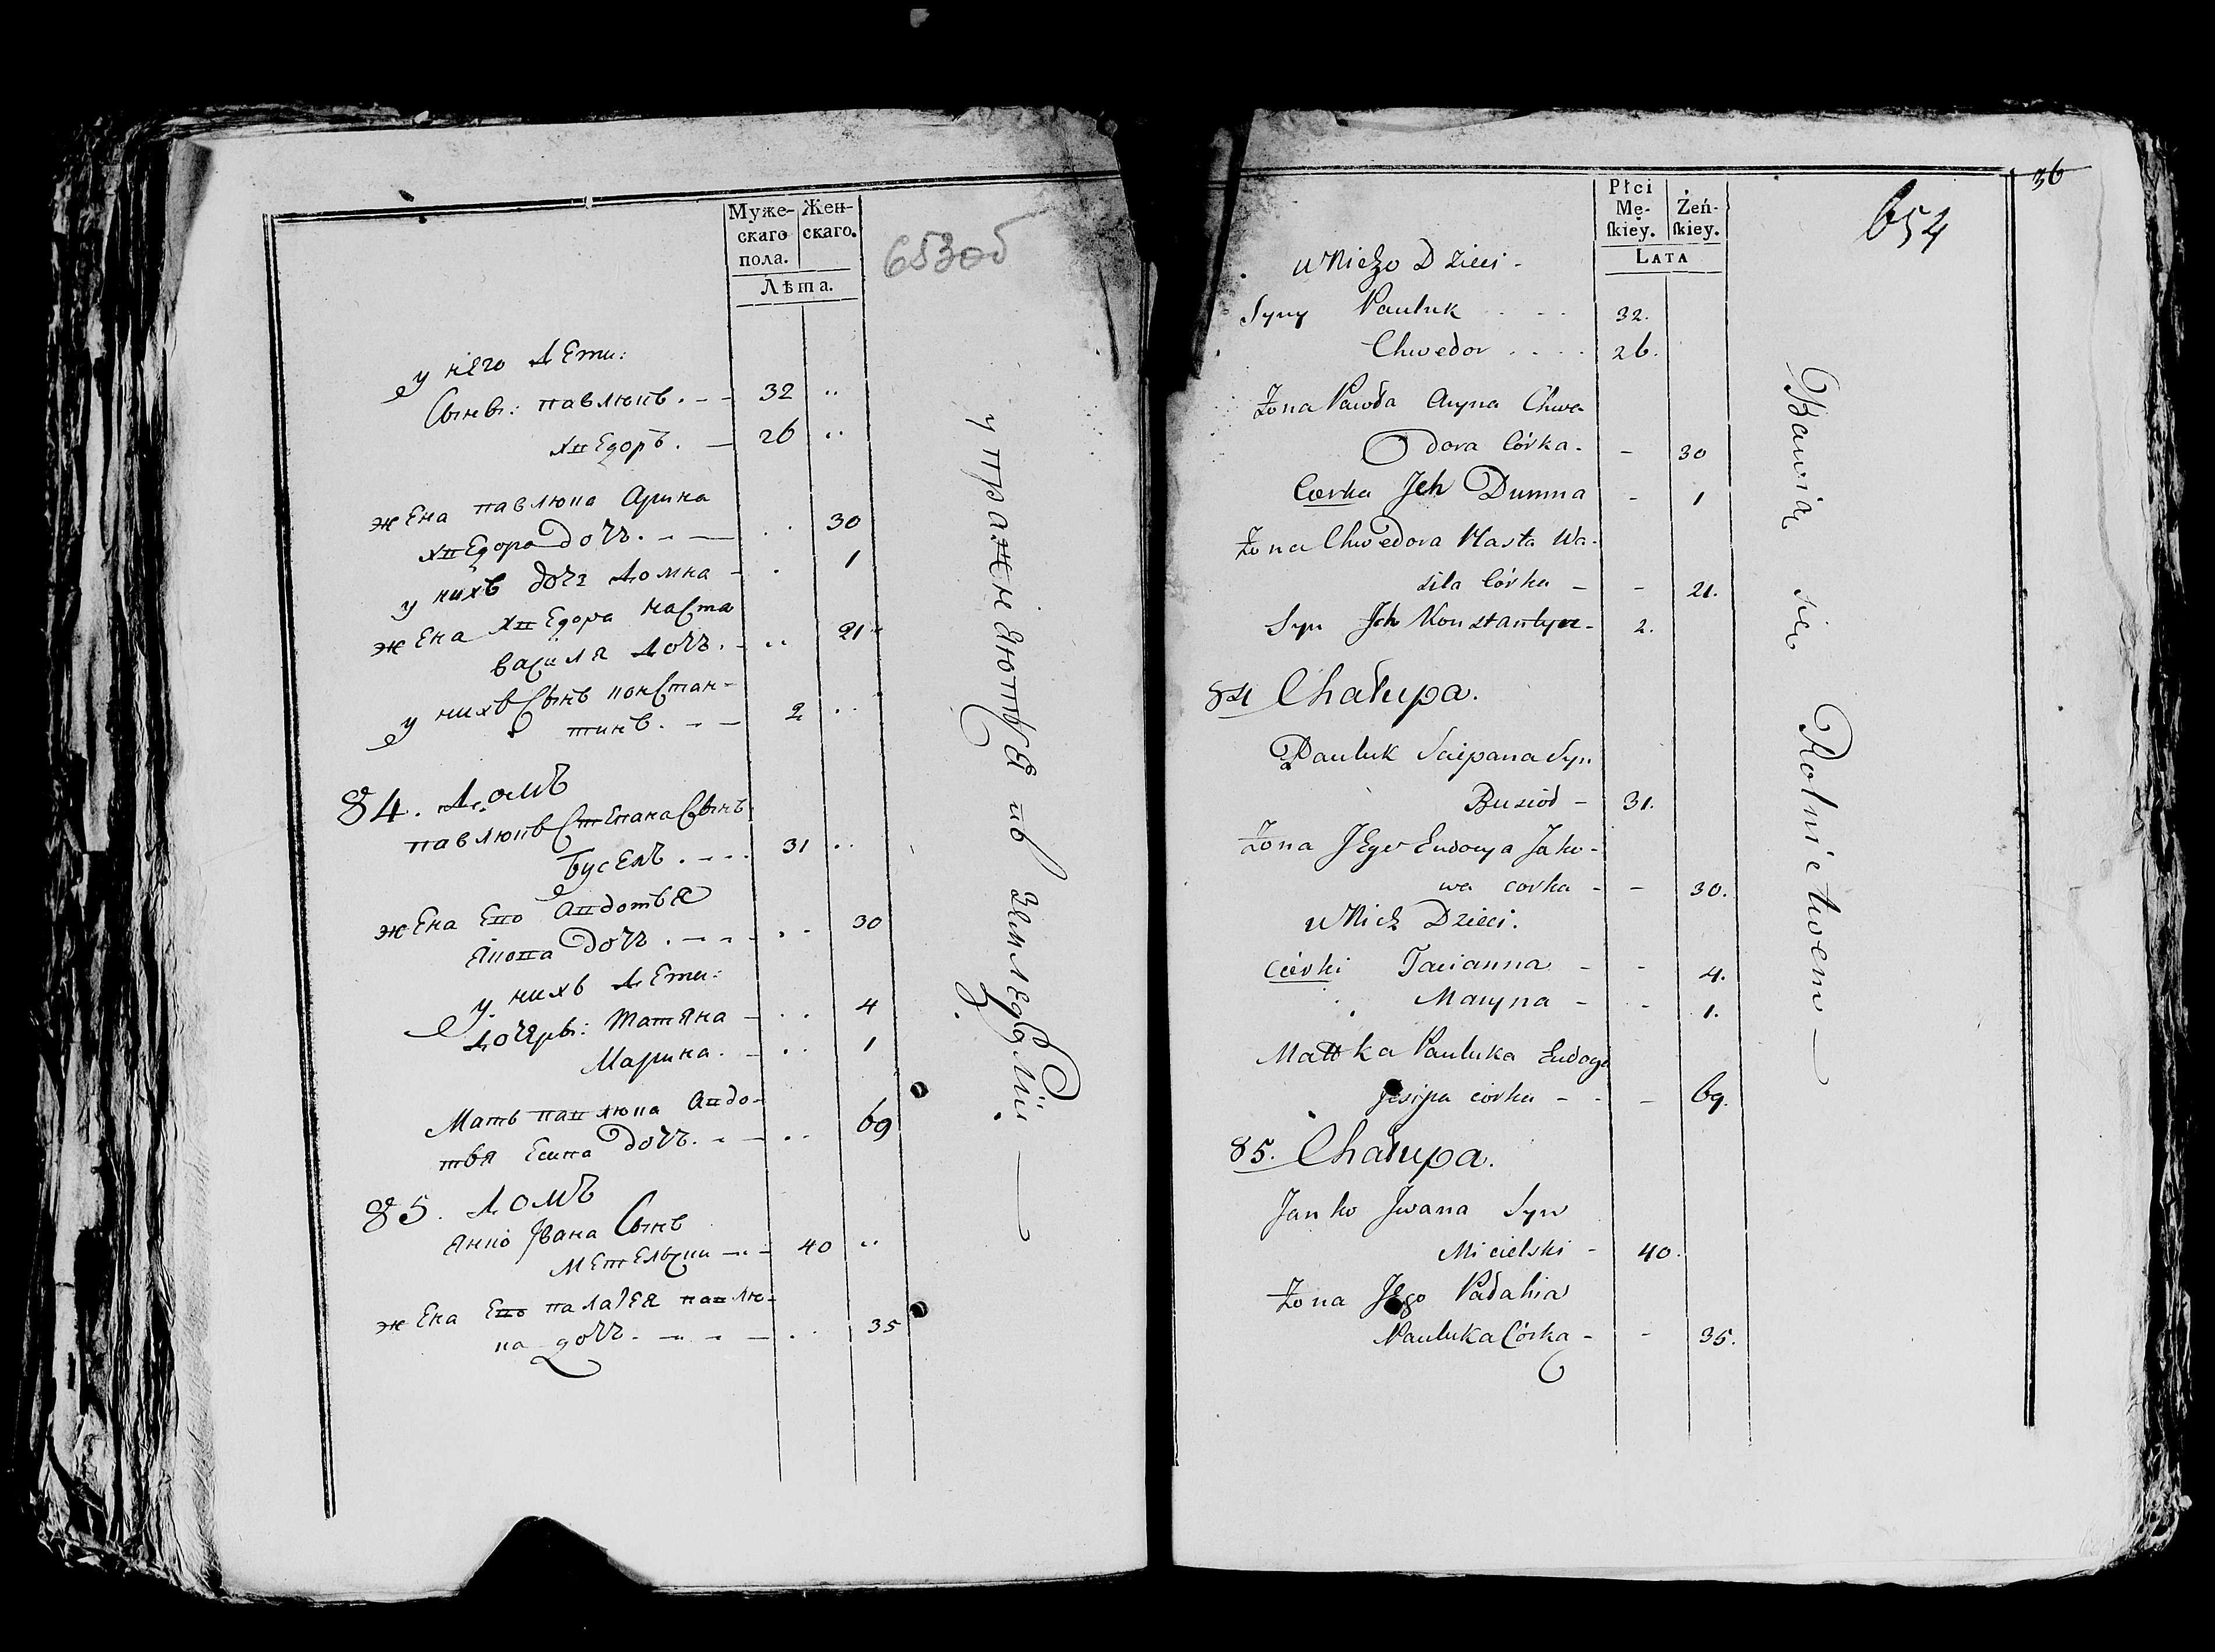 Муже- Жен-
скаго скаго.
пола.
Лѣта.
653об
у него дети:
Сыны: павлюкъ. 32 ..
хведоръ. 26 ..
жена павлюка Арина
хведора дочь. . 30
у нихъ дочь домна . 1
жена хведора наста
василя дочь. .. 21 ..
у нихъ Сынъ констан-
тинъ. 2 ..
84. домъ
павлюкъ Степана Сынъ
бусель. 31 ..
жена Его Авдотья
Якова дочь. .. 30
у нихъ дети:
дочери: татяна .. 4
Марина. .. 1
Мать павлюка Авдо-
тья Есипа дочь. .. 69
85. домъ
Янко Ивана Сынъ
метельски 40 ..
жена Его палагея павлю-
ка дочь. .. 35
упражняются въ земледелїи
36
654
Płci
Mę- Żeń-
ſkiey. ſkiey.
LATA
u Niego Dzieci -
Syny Pauluk 32.
Chwedor 26.
Żona Pawła Aryna Chwe-
dora Córka - - 30
Corka Jch Dumna - 1
Żona Chwedora Nasta Wa-
sila Córka - - 21.
Syn Jch Konstantyn - 2.
84 Chałupa.
Pauluk Sciepana Syn
Busioł - 31.
Żona Jego Eudocya Jako-
wa corka - - 30.
u Nich Dzieci.
Córki Tacianna - - 4.
Maryna - - 1.
Matka Pauluka Eudocya
Jesipa córka - - 69.
85. Chałupa.
Janko Jwana Syn
Micielski - 40.
Żona Jego Pałahia
Pauluka Córka - - 35.
Bawią się Rolnictwem